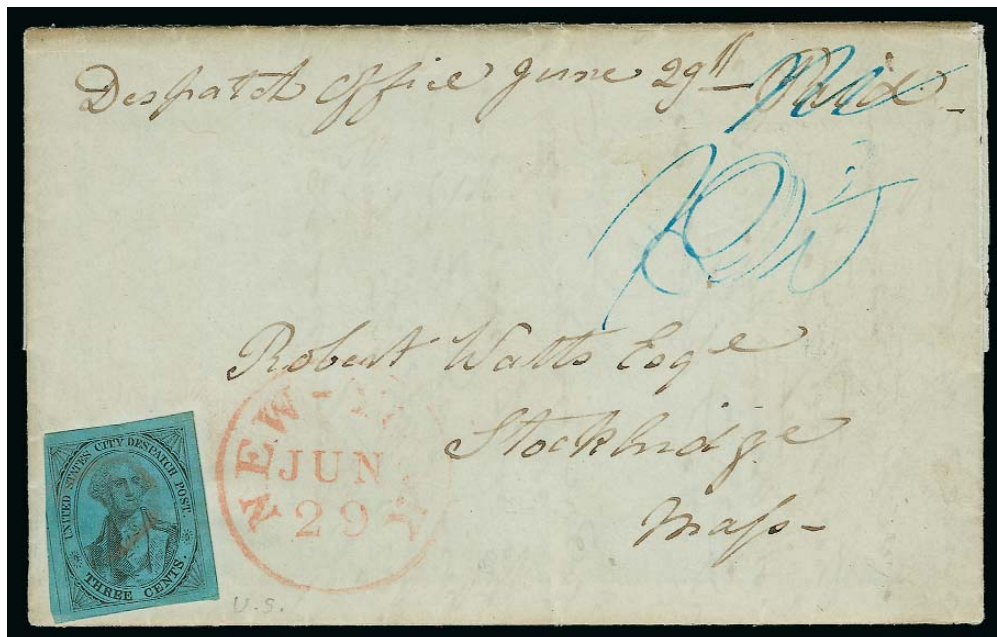 Despatch Office June 29th Paid
Robert Watts Esqe
Stockbridge
Mass
NEW-Y
JUN
29
UNITED STATES CITY DESPATCH POST.
THREE CENTS.
U.S.